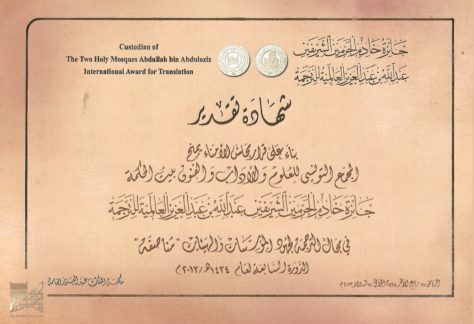 Custodian of
The Two Holy Mosques Abdullah bin Abdulaziz
International Award for Translation
جائزة خادم الحرمين الشريفين
عبدالله بن عبدالعزيز العالمية للترجمة
شهادة تقدير
بناء على قرار مجلس الأمناء يمنح
المجمع التونسي للعلوم والآداب والفنون بيت الحكمة
جائزة خادم الحرمين الشريفين عبدالله بن عبدالعزيز العالمية للترجمة
في مجال الترجمة لجهود المؤسسات والهيئات "مناصفة"
الدورة السابعة لعام ١٤٣٤هـ/٢٠١٣م
مكتبة الملك عبدالعزيز العامة